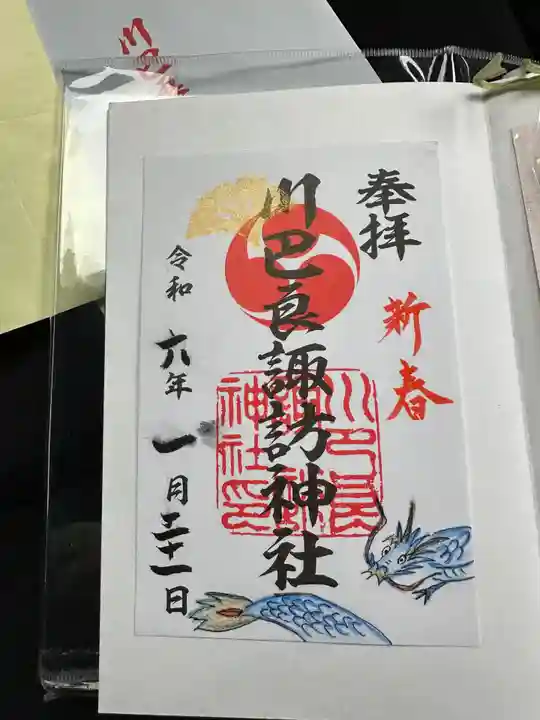 奉拝
新春
川巴良諏訪神社
川巴良
神社印
令和六年一月二十一日